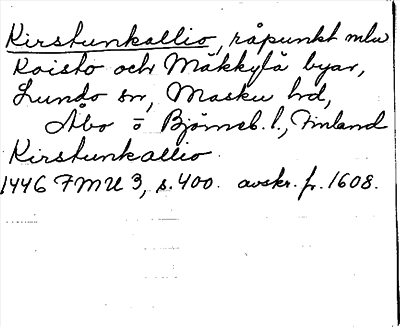 Kirstunkallio, råpunkt mlu
Koisto och Mäkkylä byar,
Lundo sn, Masku hd,
Åbo o Björneb. l., Finland
Kirstunkallio
1446 FMU 3, s. 400. avskr. fr. 1608.